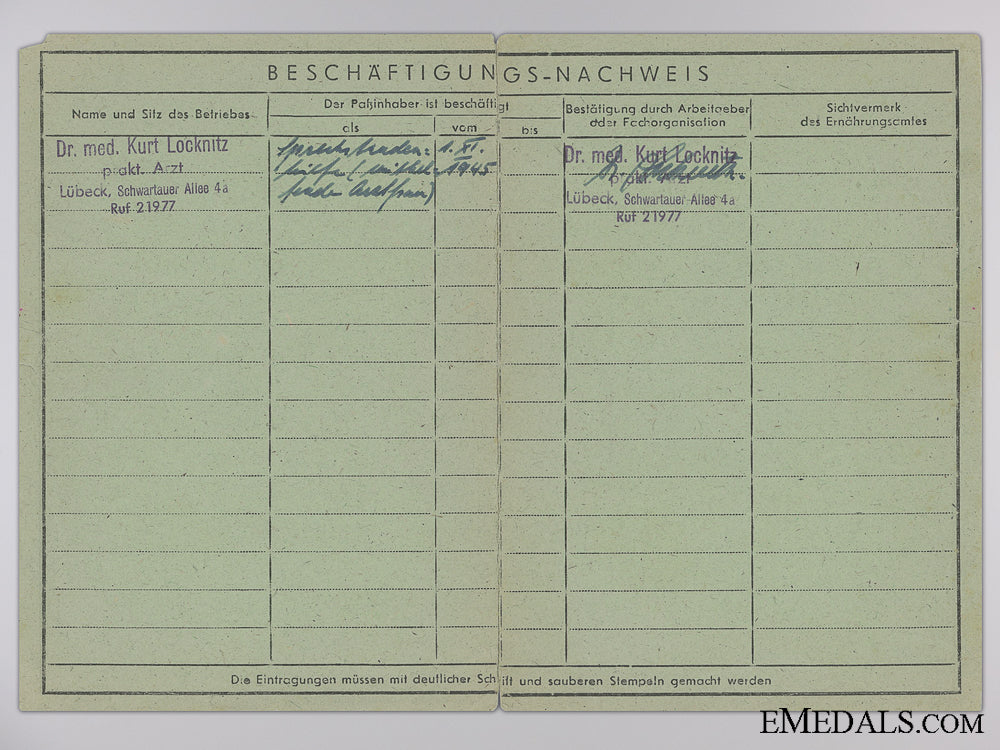 BESCHÄFTIGUNGS-NACHWEIS
Name und Sitz des Betriebes
Der Paßinhaber ist beschäftigt
als
vom
bis
Bestätigung durch Arbeitgeber
oder Fachorganisation
Sichtvermerk
des Ernährungsamtes
Dr. med. Kurt Locknitz
prakt. Arzt
Lübeck, Schwartauer Allee 4a
Ruf 21977
Sprechstunden-
hilfe (mithel-
fende Arztfrau)
1. XI.
1945
Dr. med. Kurt Locknitz
prakt. Arzt
Lübeck, Schwartauer Allee 4a
Ruf 21977
Die Eintragungen müssen mit deutlicher Schrift und sauberen Stempeln gemacht werden
EMEDALS.COM